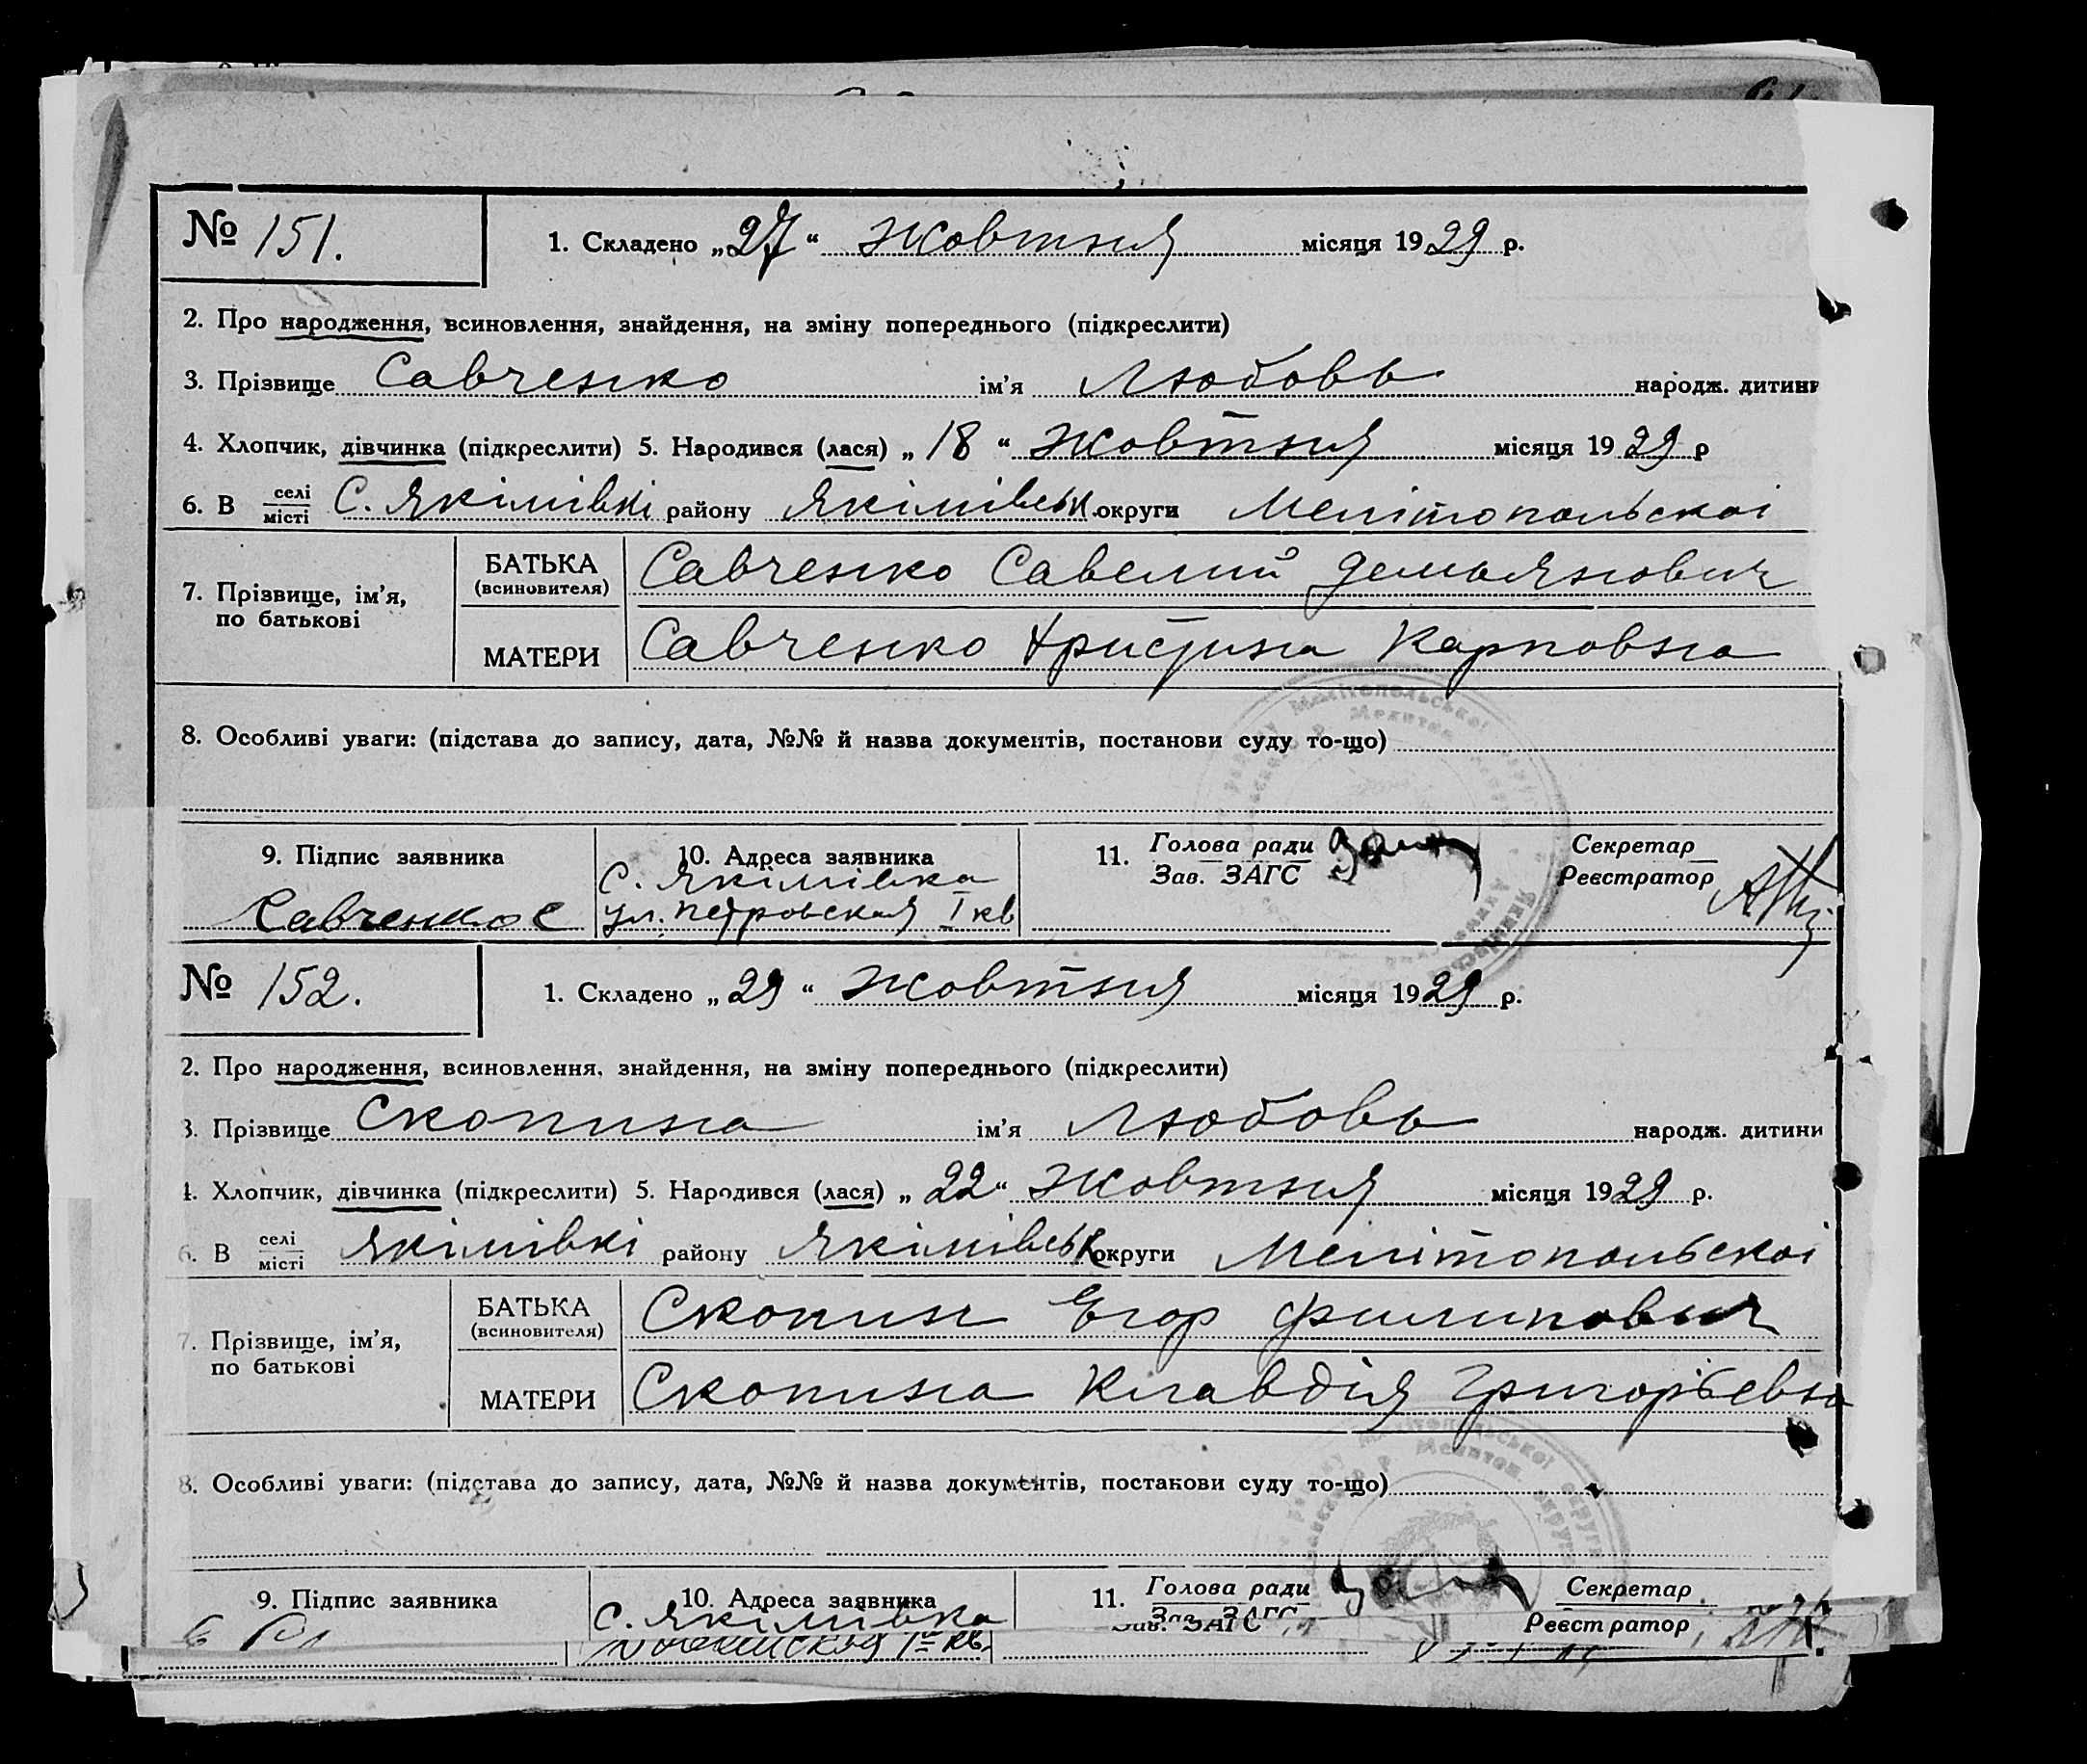 № 151. 1. Складено „27“ Жовтня місяця 1929 р.
2. Про народження, всиновлення, знайдення, на зміну попереднього (підкреслити)
3. Прізвище Савченко ім'я Любовь народж. дитини
4. Хлопчик, дівчинка (підкреслити) 5. Народився (лася) „18“ Жовтня місяця 1929 р
6. В селі місті С. Якімівкі району Якімівськ. округи Мелітопольскоі
7. Прізвище, ім'я, по батькові
БАТЬКА (всиновителя) Савченко Савелий Демьянович
МАТЕРИ Савченко Христина Карповна
8. Особливі уваги: (підстава до запису, дата, №№ й назва документів, постанови суду то-що)
9. Підпис заявника 10. Адреса заявника 11. Голова ради Секретар
Зав. ЗАГС Реєстратор
С. Якімівка
Савченко С ул. Петровская I кв
№ 152. 1. Складено „29“ Жовтня місяця 1929 р.
2. Про народження, всиновлення, знайдення, на зміну попереднього (підкреслити)
3. Прізвище Скопина ім'я Любовь народж. дитини
4. Хлопчик, дівчинка (підкреслити) 5. Народився (лася) „22“ Жовтня місяця 1929 р.
6. В селі місті Якімівкі району Якімівськ округи Мелітопольскоі
7. Прізвище, ім'я, по батькові
БАТЬКА (всиновителя) Скопин Егор Филипович
МАТЕРИ Скопина Клавдія Григорьевна
8. Особливі уваги: (підстава до запису, дата, №№ й назва документів, постанови суду то-що)
9. Підпис заявника 10. Адреса заявника 11. Голова ради Секретар
Зав. ЗАГС Реєстратор
С. Якімівка